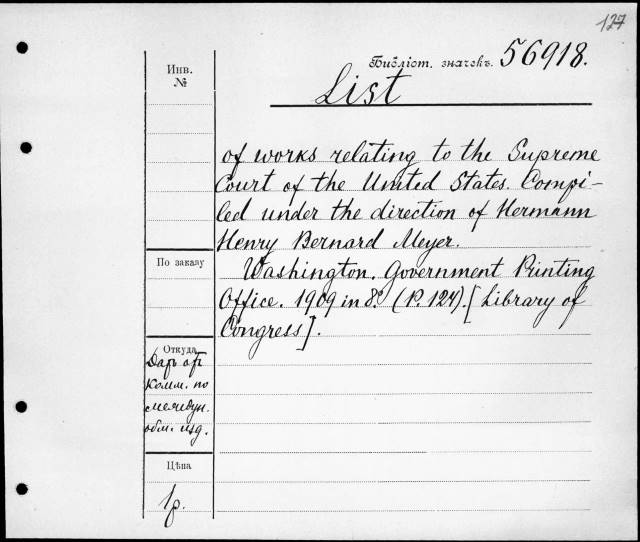 127
Инв.
№
Библіот. значекъ. 56918.
List
of works relating to the Supreme
Court of the United States. Compi-
led under the direction of Hermann
Henry Bernard Meyer.
По заказу
Washington. Government Printing
Office. 1909 in 8º. (P. 124). [Library of
Congress].
Откуда
Даръ отъ
Комм. по
междун.
обм. изд.
Цѣна
1р.